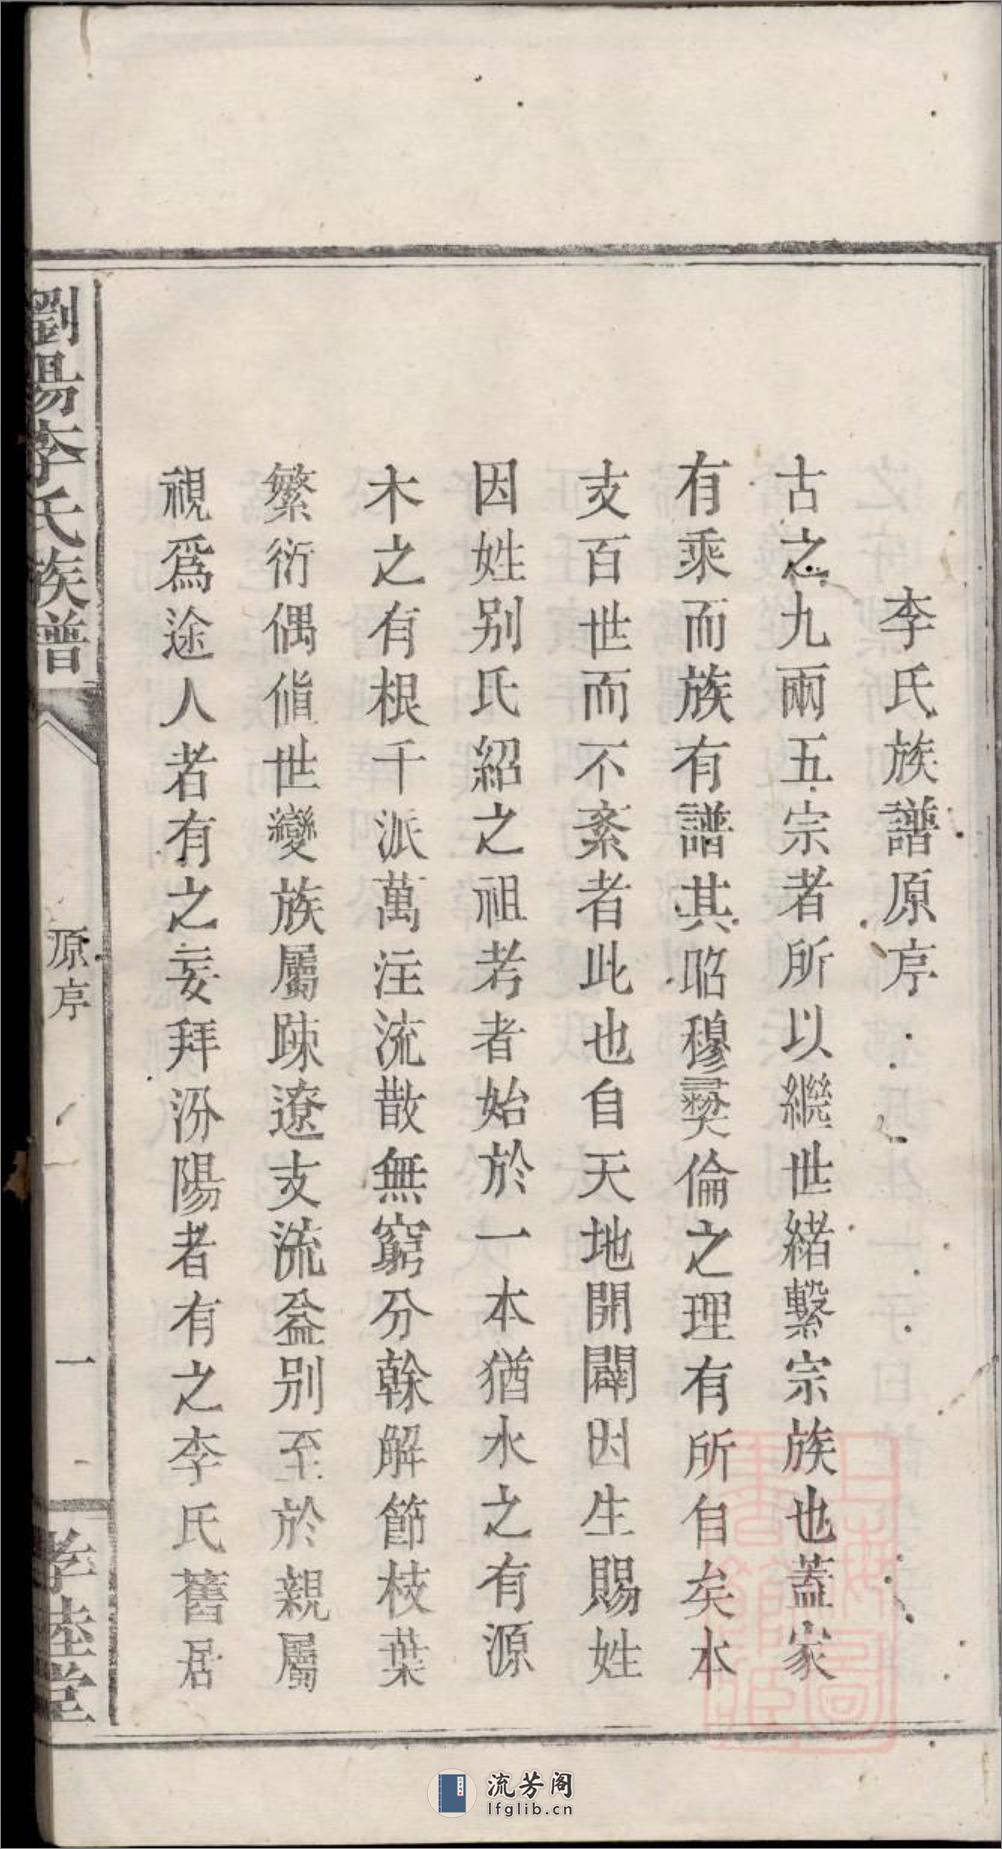 李氏族譜原序
古之九兩五宗者所以繼世緒繫宗族也蓋家
有乘而族有譜其昭穆彛倫之理有所自矣本
支百世而不紊者此也自天地開闢因生賜姓
因姓別氏紹之祖考者始於一本猶水之有源
木之有根千派萬注流散無窮分榦解節枝葉
繁衍偶值世變族屬踈遼支流益別至於親屬
視爲途人者有之妄拜汾陽者有之李氏舊居
劉陽李氏族譜
原序
一
孝睦堂
上海圖書館藏
流芳阁
lfglib.cn